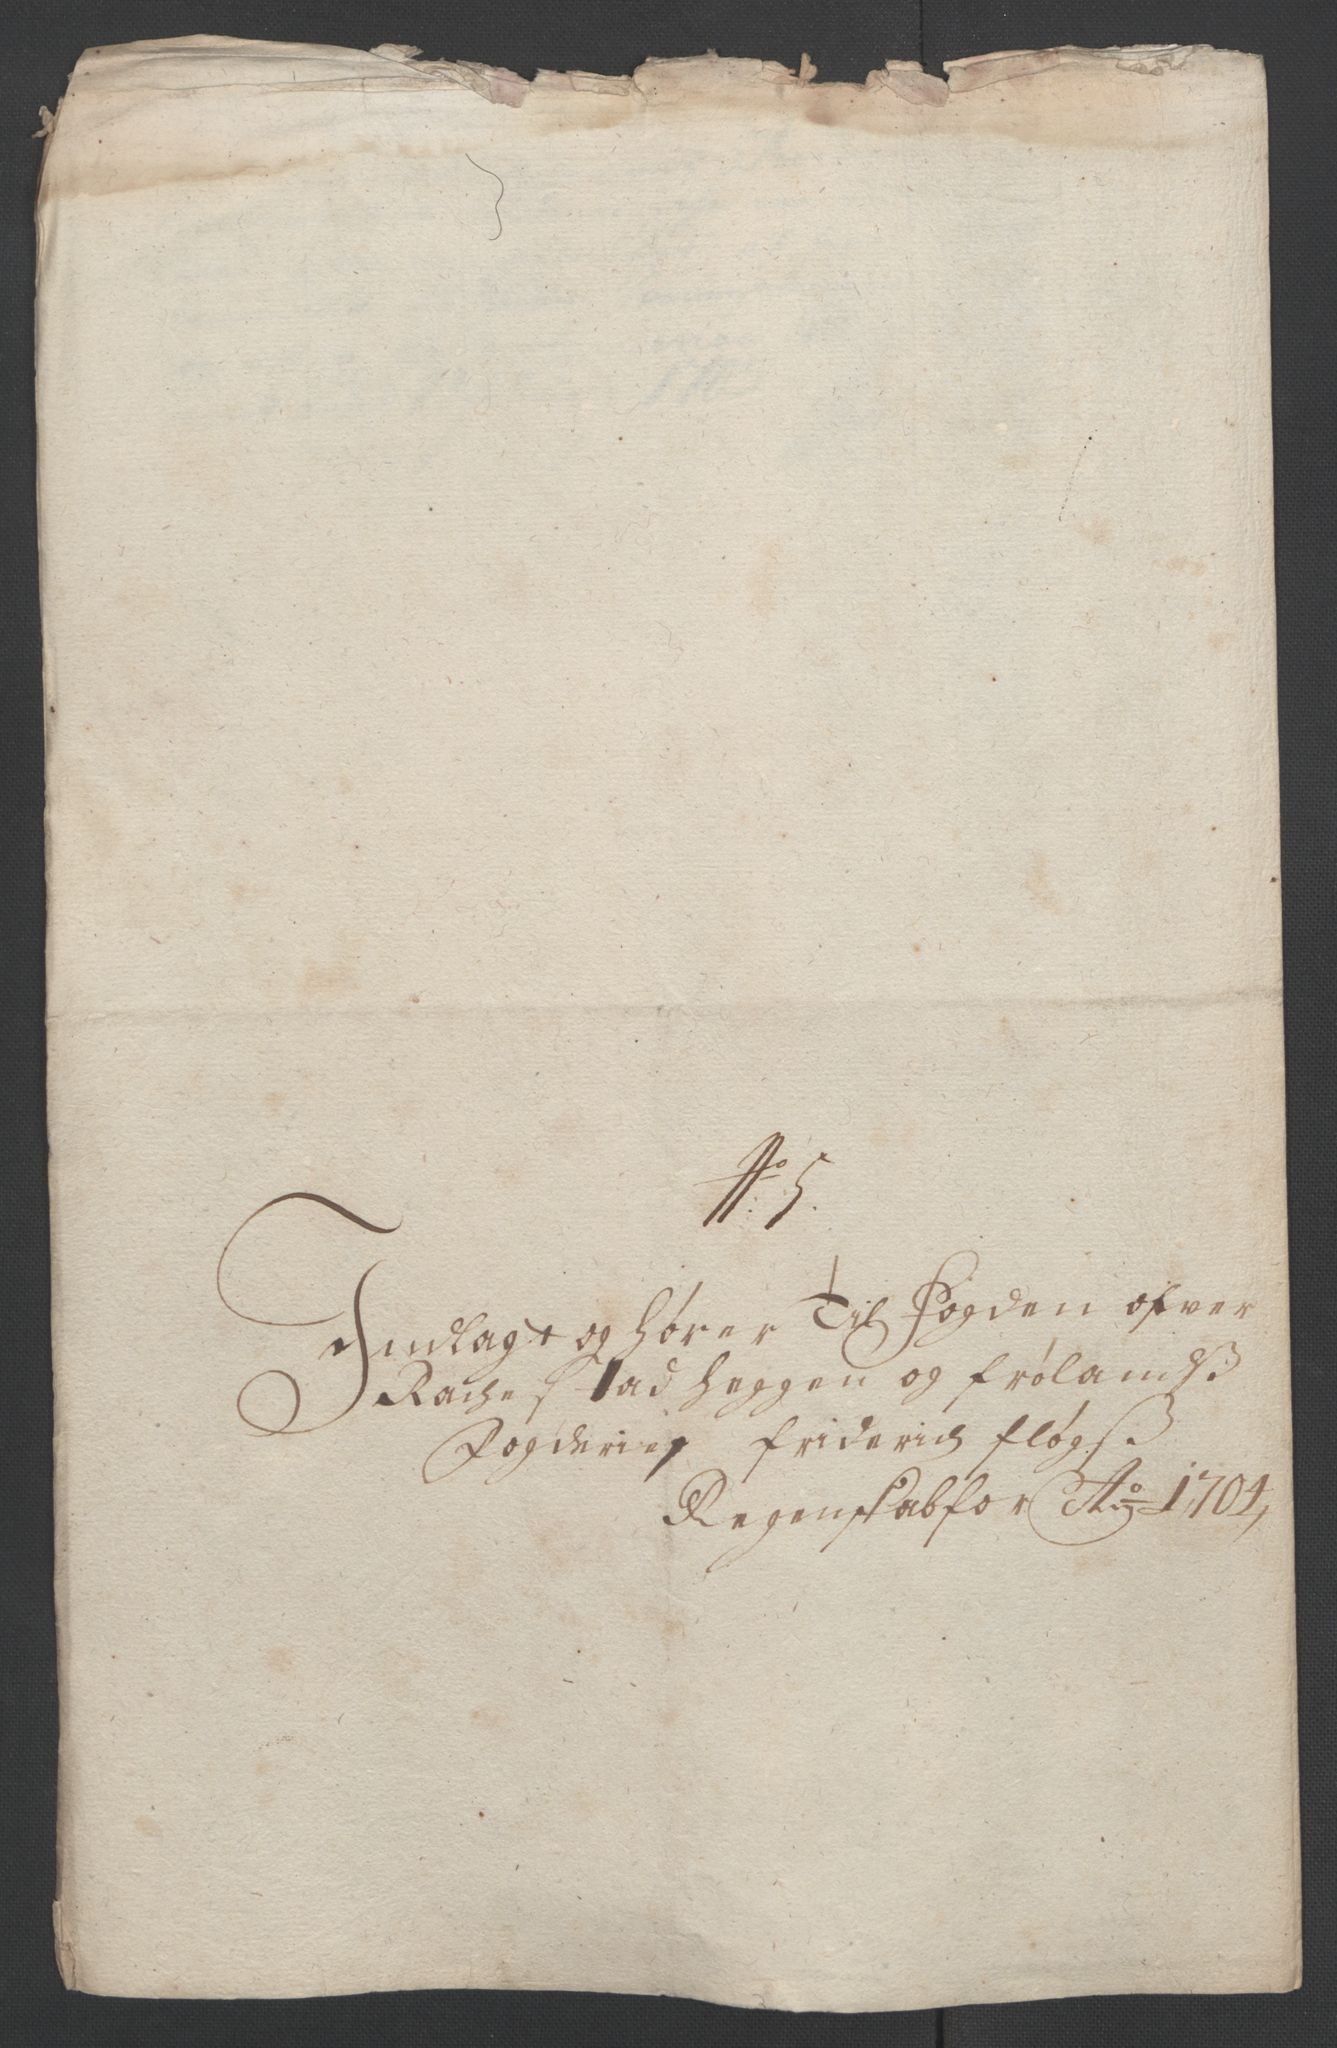 No: 5.
Indlagt og hører Til Fogden ofver
Rachestad heggen og frølands
Fogderier friderich fløgs
Regenskab for Ao 1704,